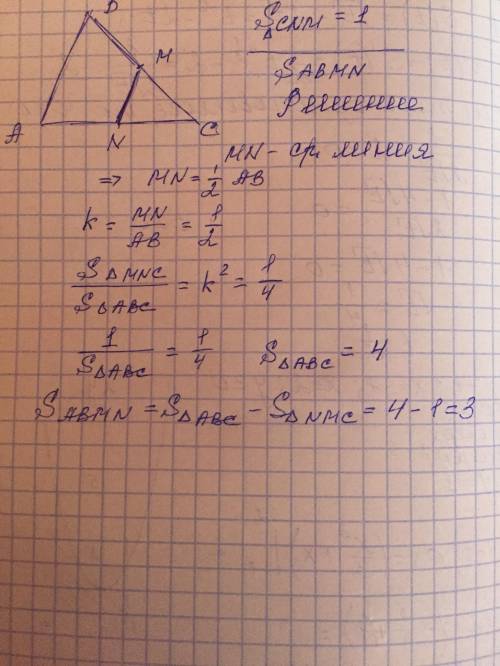 B
M
A
N
C
S△CNM = 1
S ABMN
Решение
MN - ср. линия
⇒ MN = 1/2 AB
k = MN/AB = 1/2
S△MNC/S△ABC = k² = 1/4
1/S△ABC = 1/4 S△ABC = 4
S ABMN = S△ABC - S△NMC = 4 - 1 = 3